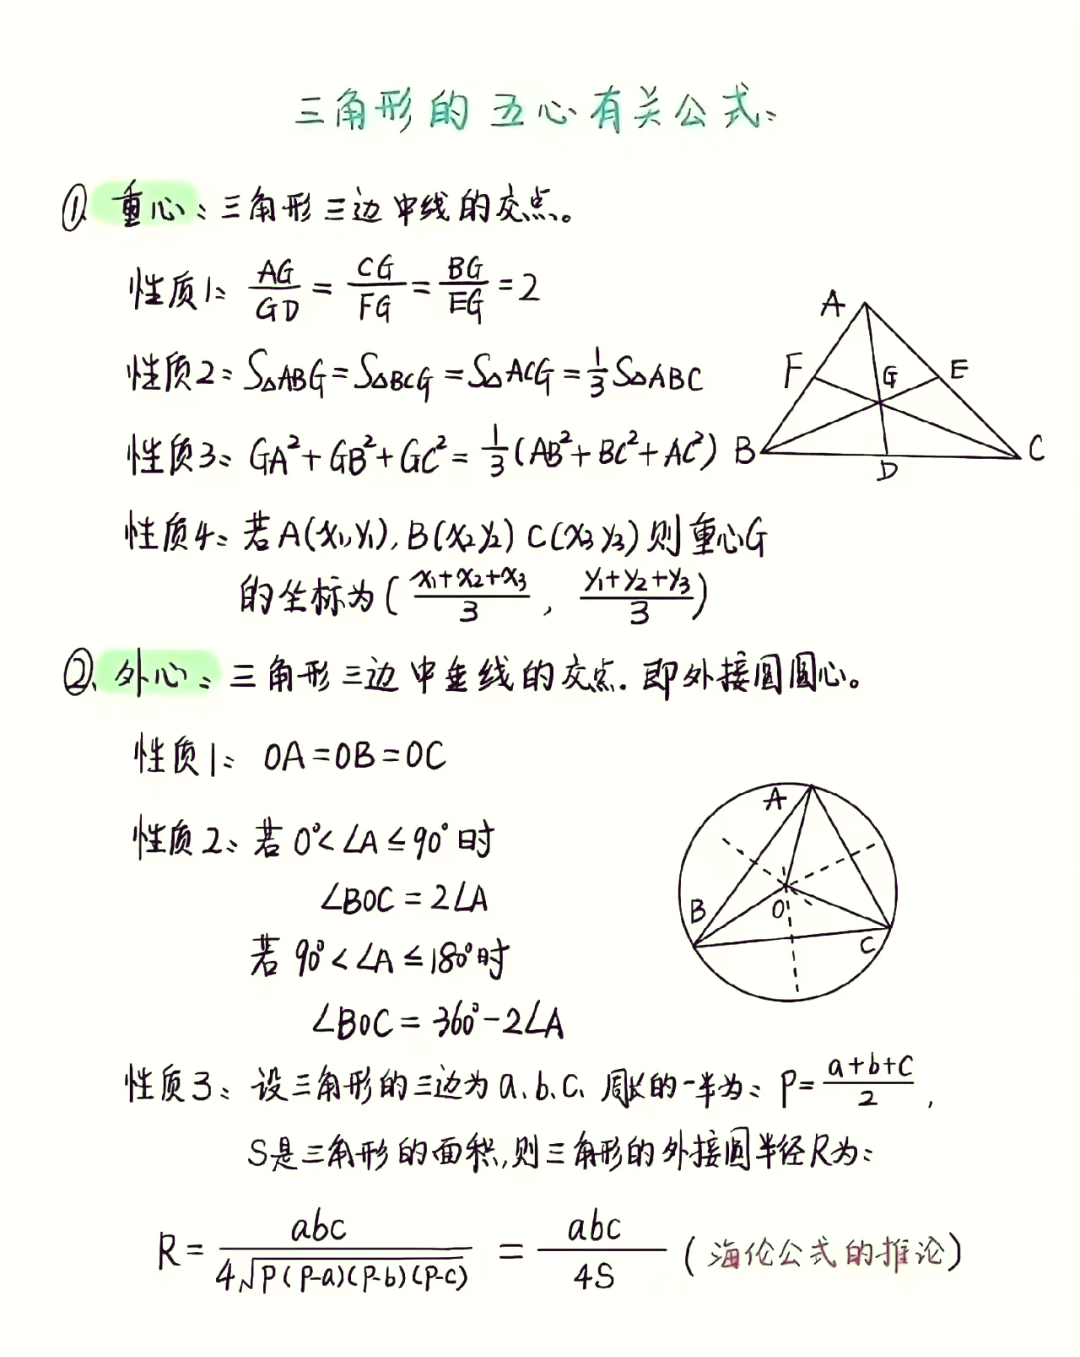 三角形的五心有关公式:
① 重心:三角形三边中线的交点。
性质1: AG/GD = CG/FG = BG/EG = 2
性质2: S△ABG = S△BCG = S△ACG = 1/3 S△ABC
性质3: GA² + GB² + GC² = 1/3 (AB² + BC² + AC²)
A
F
G
E
B
D
C
性质4: 若A(x₁,y₁), B(x₂ y₂) C(x₃ y₃) 则重心G
的坐标为( (x₁+x₂+x₃)/3 , (y₁+y₂+y₃)/3 )
②、外心:三角形三边中垂线的交点.即外接圆圆心。
性质1: OA=OB=OC
性质2: 若 0°<∠A≤90°时
∠BOC = 2∠A
若 90°<∠A≤180°时
∠BOC = 360°-2∠A
A
B
O
C
性质3: 设三角形的三边为a.b.c. 周长的一半为: P = (a+b+c)/2 ,
S是三角形的面积,则三角形的外接圆半径R为:
R = abc / 4√P(P-a)(P-b)(P-c) = abc/4S (海伦公式的推论)